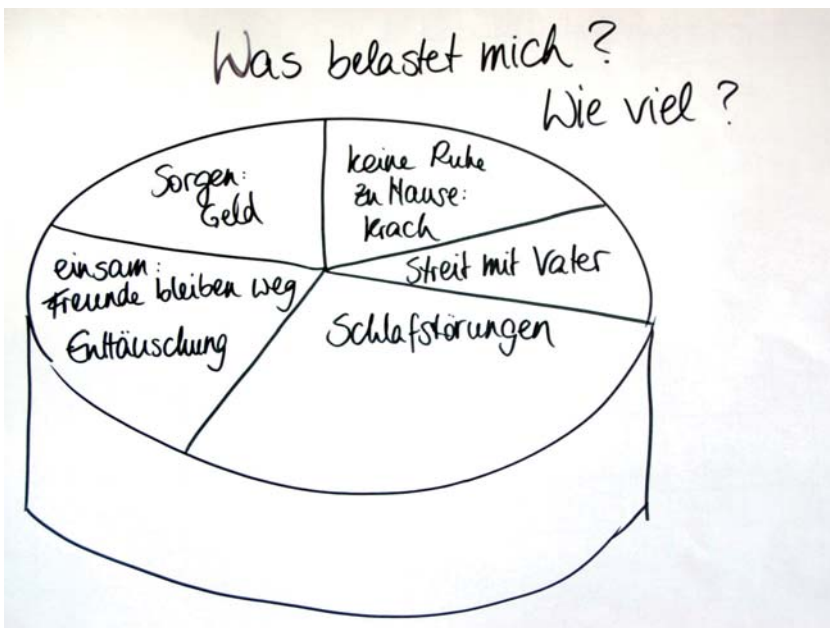 Was belastet mich?
Wie viel?
Sorgen:
Geld
keine Ruhe
zu Hause:
Krach
Streit mit Vater
Schlafstörungen
einsam:
Freunde bleiben weg
Enttäuschung